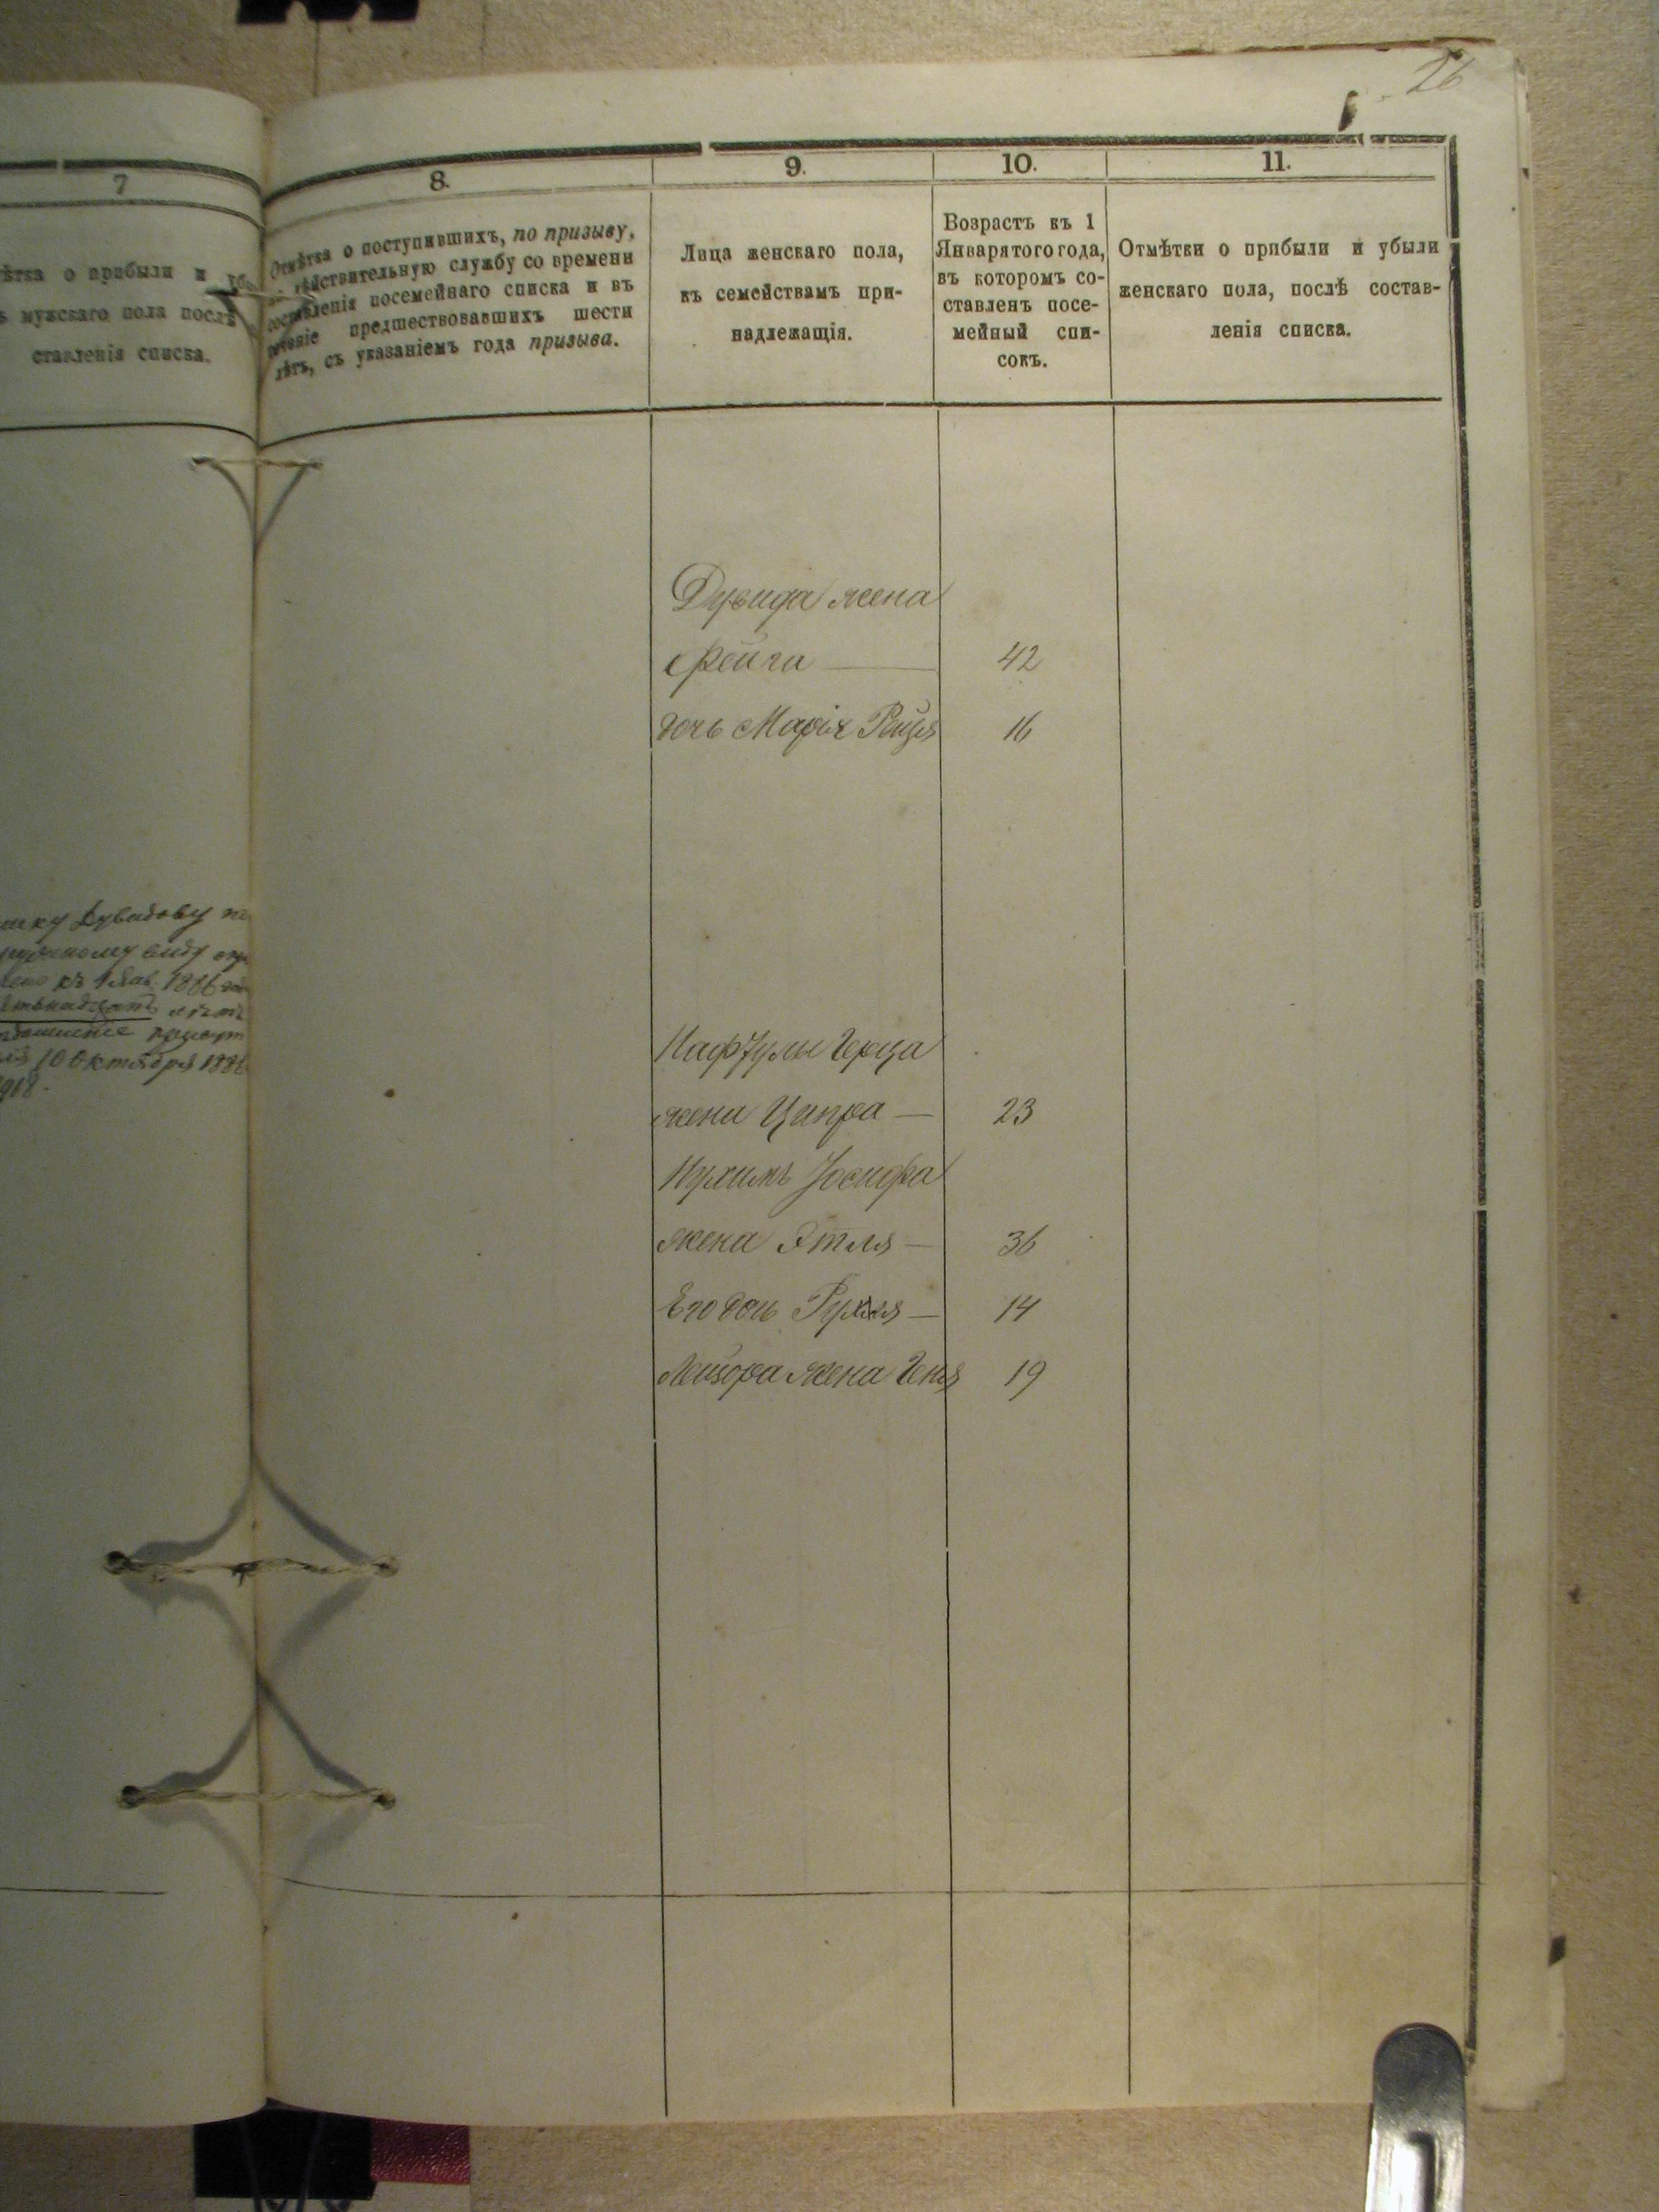 26
7
ѣтка о прибыли и
ъ мужскаго пола послѣ
ставленія списка.
8.
Отмѣтка о поступившихъ, по призыву,
дѣйствительную службу со времени
составленія посемейнаго списка и въ
теченіе предшествовавшихъ шести
лѣтъ, съ указаніемъ года призыва.
9.
Лица женскаго пола,
къ семействамъ при-
надлежащія.
10.
Возрастъ къ 1
Января того года,
въ которомъ со-
ставленъ посе-
мейный спи-
сокъ.
11.
Отмѣтки о прибыли и убыли
женскаго пола, послѣ состав-
ленія списка.
шку Дувидову
виду
къ 1 Янв. 1886
лѣтъ
10 Октября 188
Дувида жена
Фейга — 42
дочь Марія Рейзя 16
Нафтулы Герца
жена Ципра — 23
Нухимъ Іосифа
жена Этля — 36
Его дочь Рухля — 14
Лейзора жена Геня 19